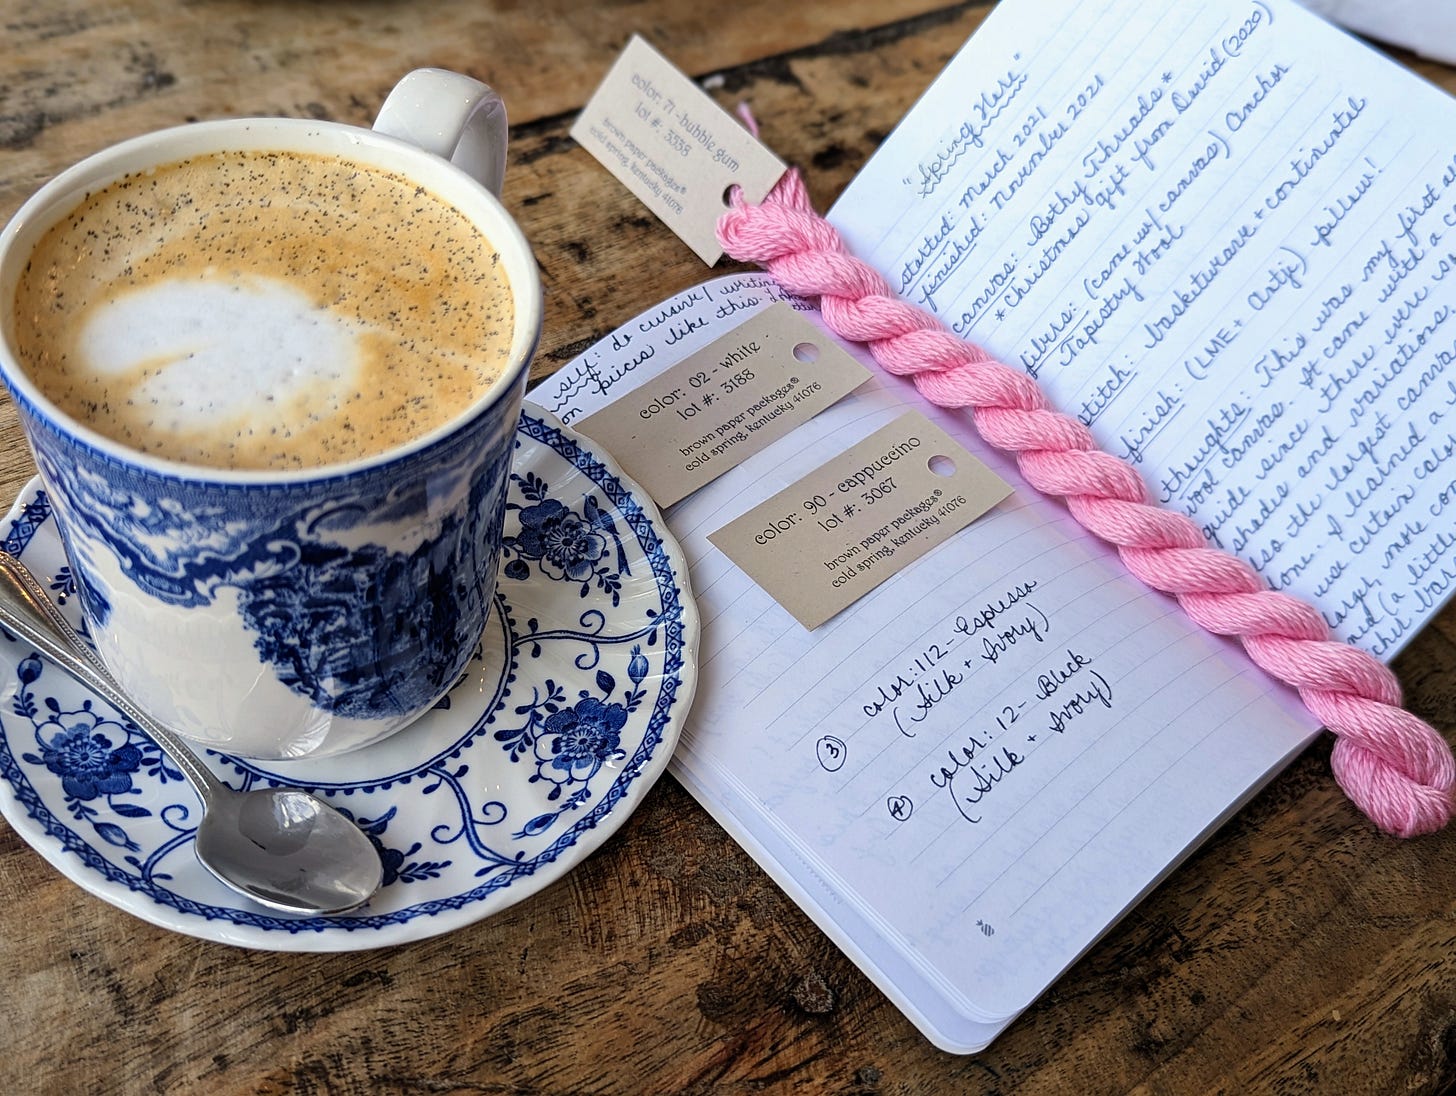 color: 71 - bubble gum
lot #: 3538
brown paper packages®
cold spring, kentucky 41076
self: do cursive/ writing
on pieces like this
color: 02 - white
lot #: 3188
brown paper packages®
cold spring, kentucky 41076
color: 90 - cappuccino
lot #: 3067
brown paper packages®
cold spring, kentucky 41076
③ color: 112 - Espresso
(Silk + Ivory)
④ color: 12 - Black
(Silk + Ivory)
"Spring Here"
started: March 2021
finished: November 2021
canvas: Bothy Threads*
*Christmas gift from David (2020)
fibers: (came w/ canvas) Anchor
Tapestry Wool
stitch: basketweave + continental
finish: (LME + Artji) pillow!
thoughts: This was my first
wool canvas. It came with a
guide since there were
shades and variations
also the largest canvas
done I learned a
use curious
larger, make
and (a little